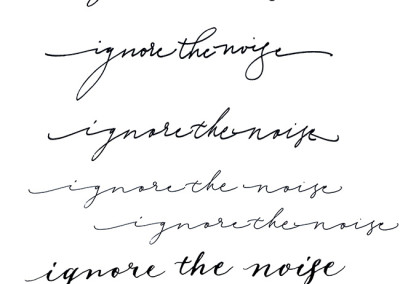 ignore the noise
ignore the noise
ignore the noise
ignore the noise
ignore the noise